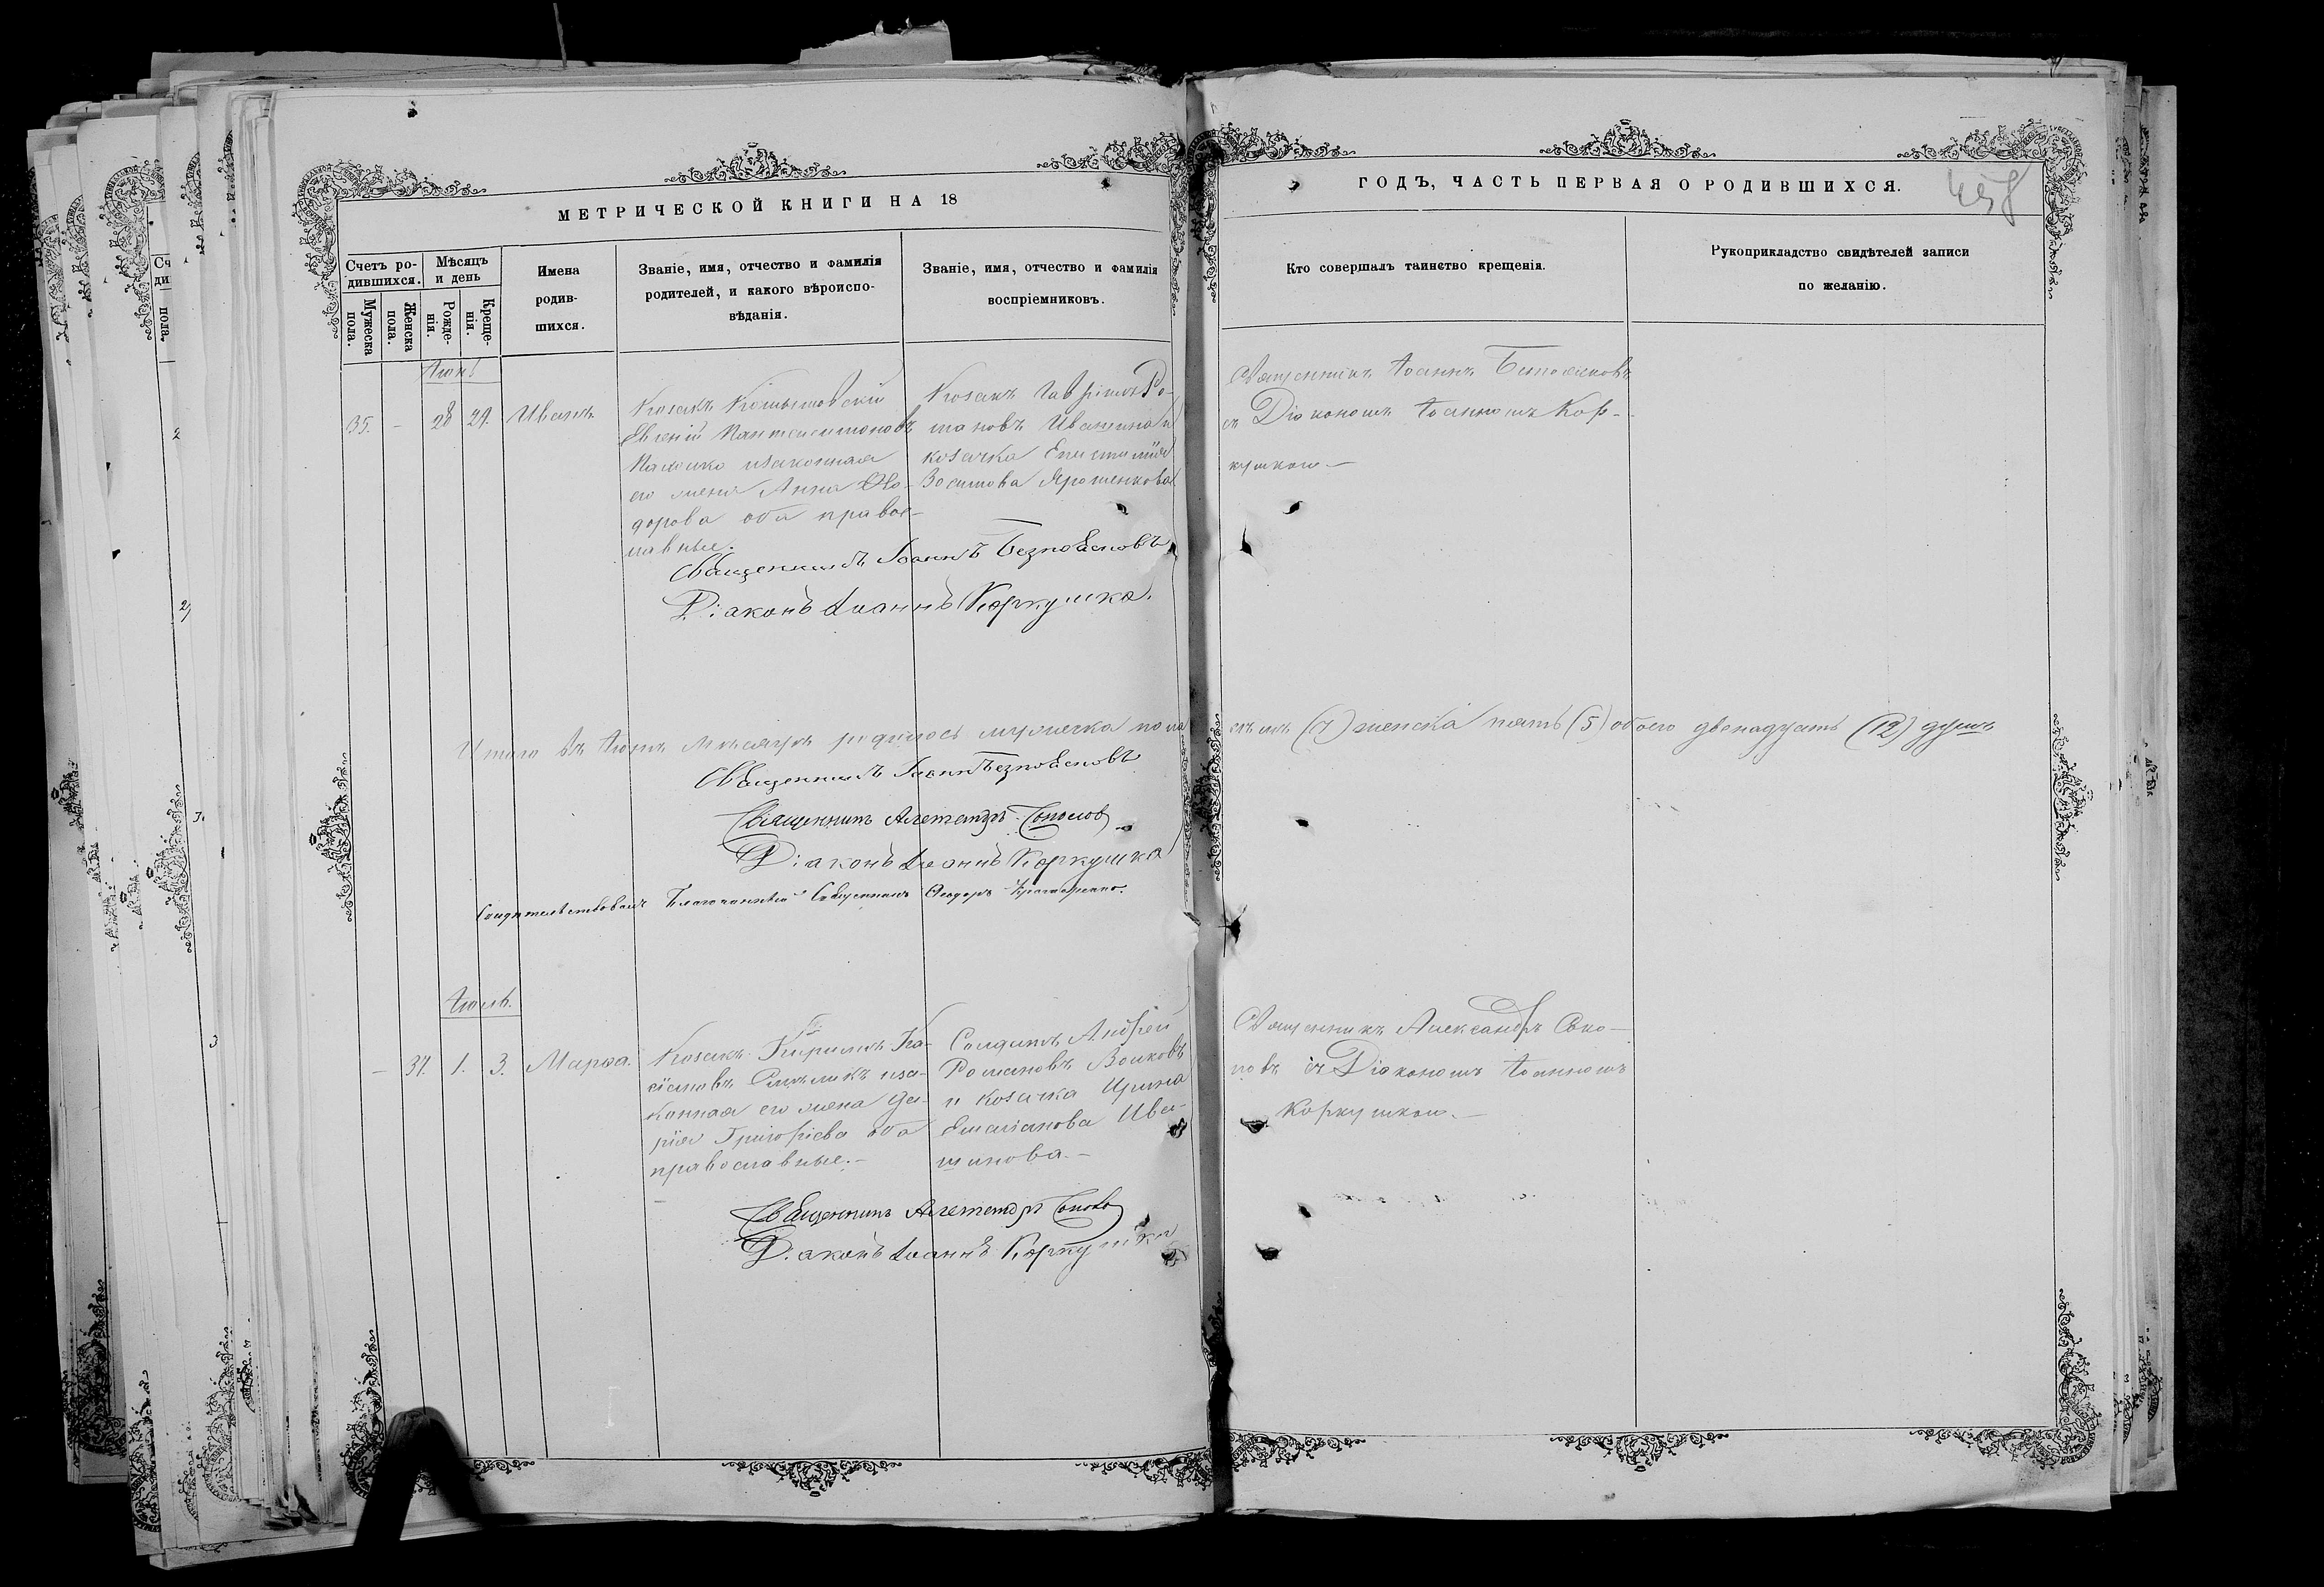 МЕТРИЧЕСКОЙ КНИГИ НА 18
ГОДЪ, ЧАСТЬ ПЕРВАЯ О РОДИВШИХСЯ.
458
Счетъ ро-
дившихся.
Мужеска пола.
Женска пола.
Мѣсяцъ и день
Рожде-
нія.
Креще-
нія.
Имена
родив-
шихся.
Званіе, имя, отчество и фамилія
родителей, и какого вѣроиспо-
вѣданія.
Званіе, имя, отчество и фамилія
воспріемниковъ.
Кто совершалъ таинство крещенія.
Рукоприкладство свидѣтелей записи
по желанію.
Іюнь
35. - 28 29. Иванъ
Козакъ
Евгеній Пантелеимоновъ
законная
его жена Анна Ѳео-
дорова оба право-
славные.
Козакъ Гавріилъ Ро-
мановъ
козачка Епистимія
Зосимова Ярошенкова
Священникъ Іоаннъ
съ Діакономъ Іоанномъ Кор-
кушкою
Священникъ Іоаннъ Безпоясковъ
Діаконъ Іоаннъ Коркушка.
Итого въ Іюнѣ мѣсяцѣ родилось мужеска пола
семь (7) женска пять (5) обоего двенадцать (12) душъ
Священникъ Іоаннъ Безпоясковъ
Священникъ Александръ
Діаконъ Іоаннъ Коркушка
Свидѣтельствовалъ Благочинный Священникъ Ѳеодоръ
Іюль.
- 31. 1. 3. Марѳа.
Козакъ Кириллъ Ка-
сіановъ зако-
конная его жена Да-
рія Григоріева оба
православные.-
Солдатъ Андрей
Романовъ Волковъ
и козачка Ирина
Емиліанова Ива-
шинова.-
Священникъ Александръ
съ Діакономъ Іоанномъ
Коркушкою.-
Священникъ Александръ
Діаконъ Іоаннъ Коркушка